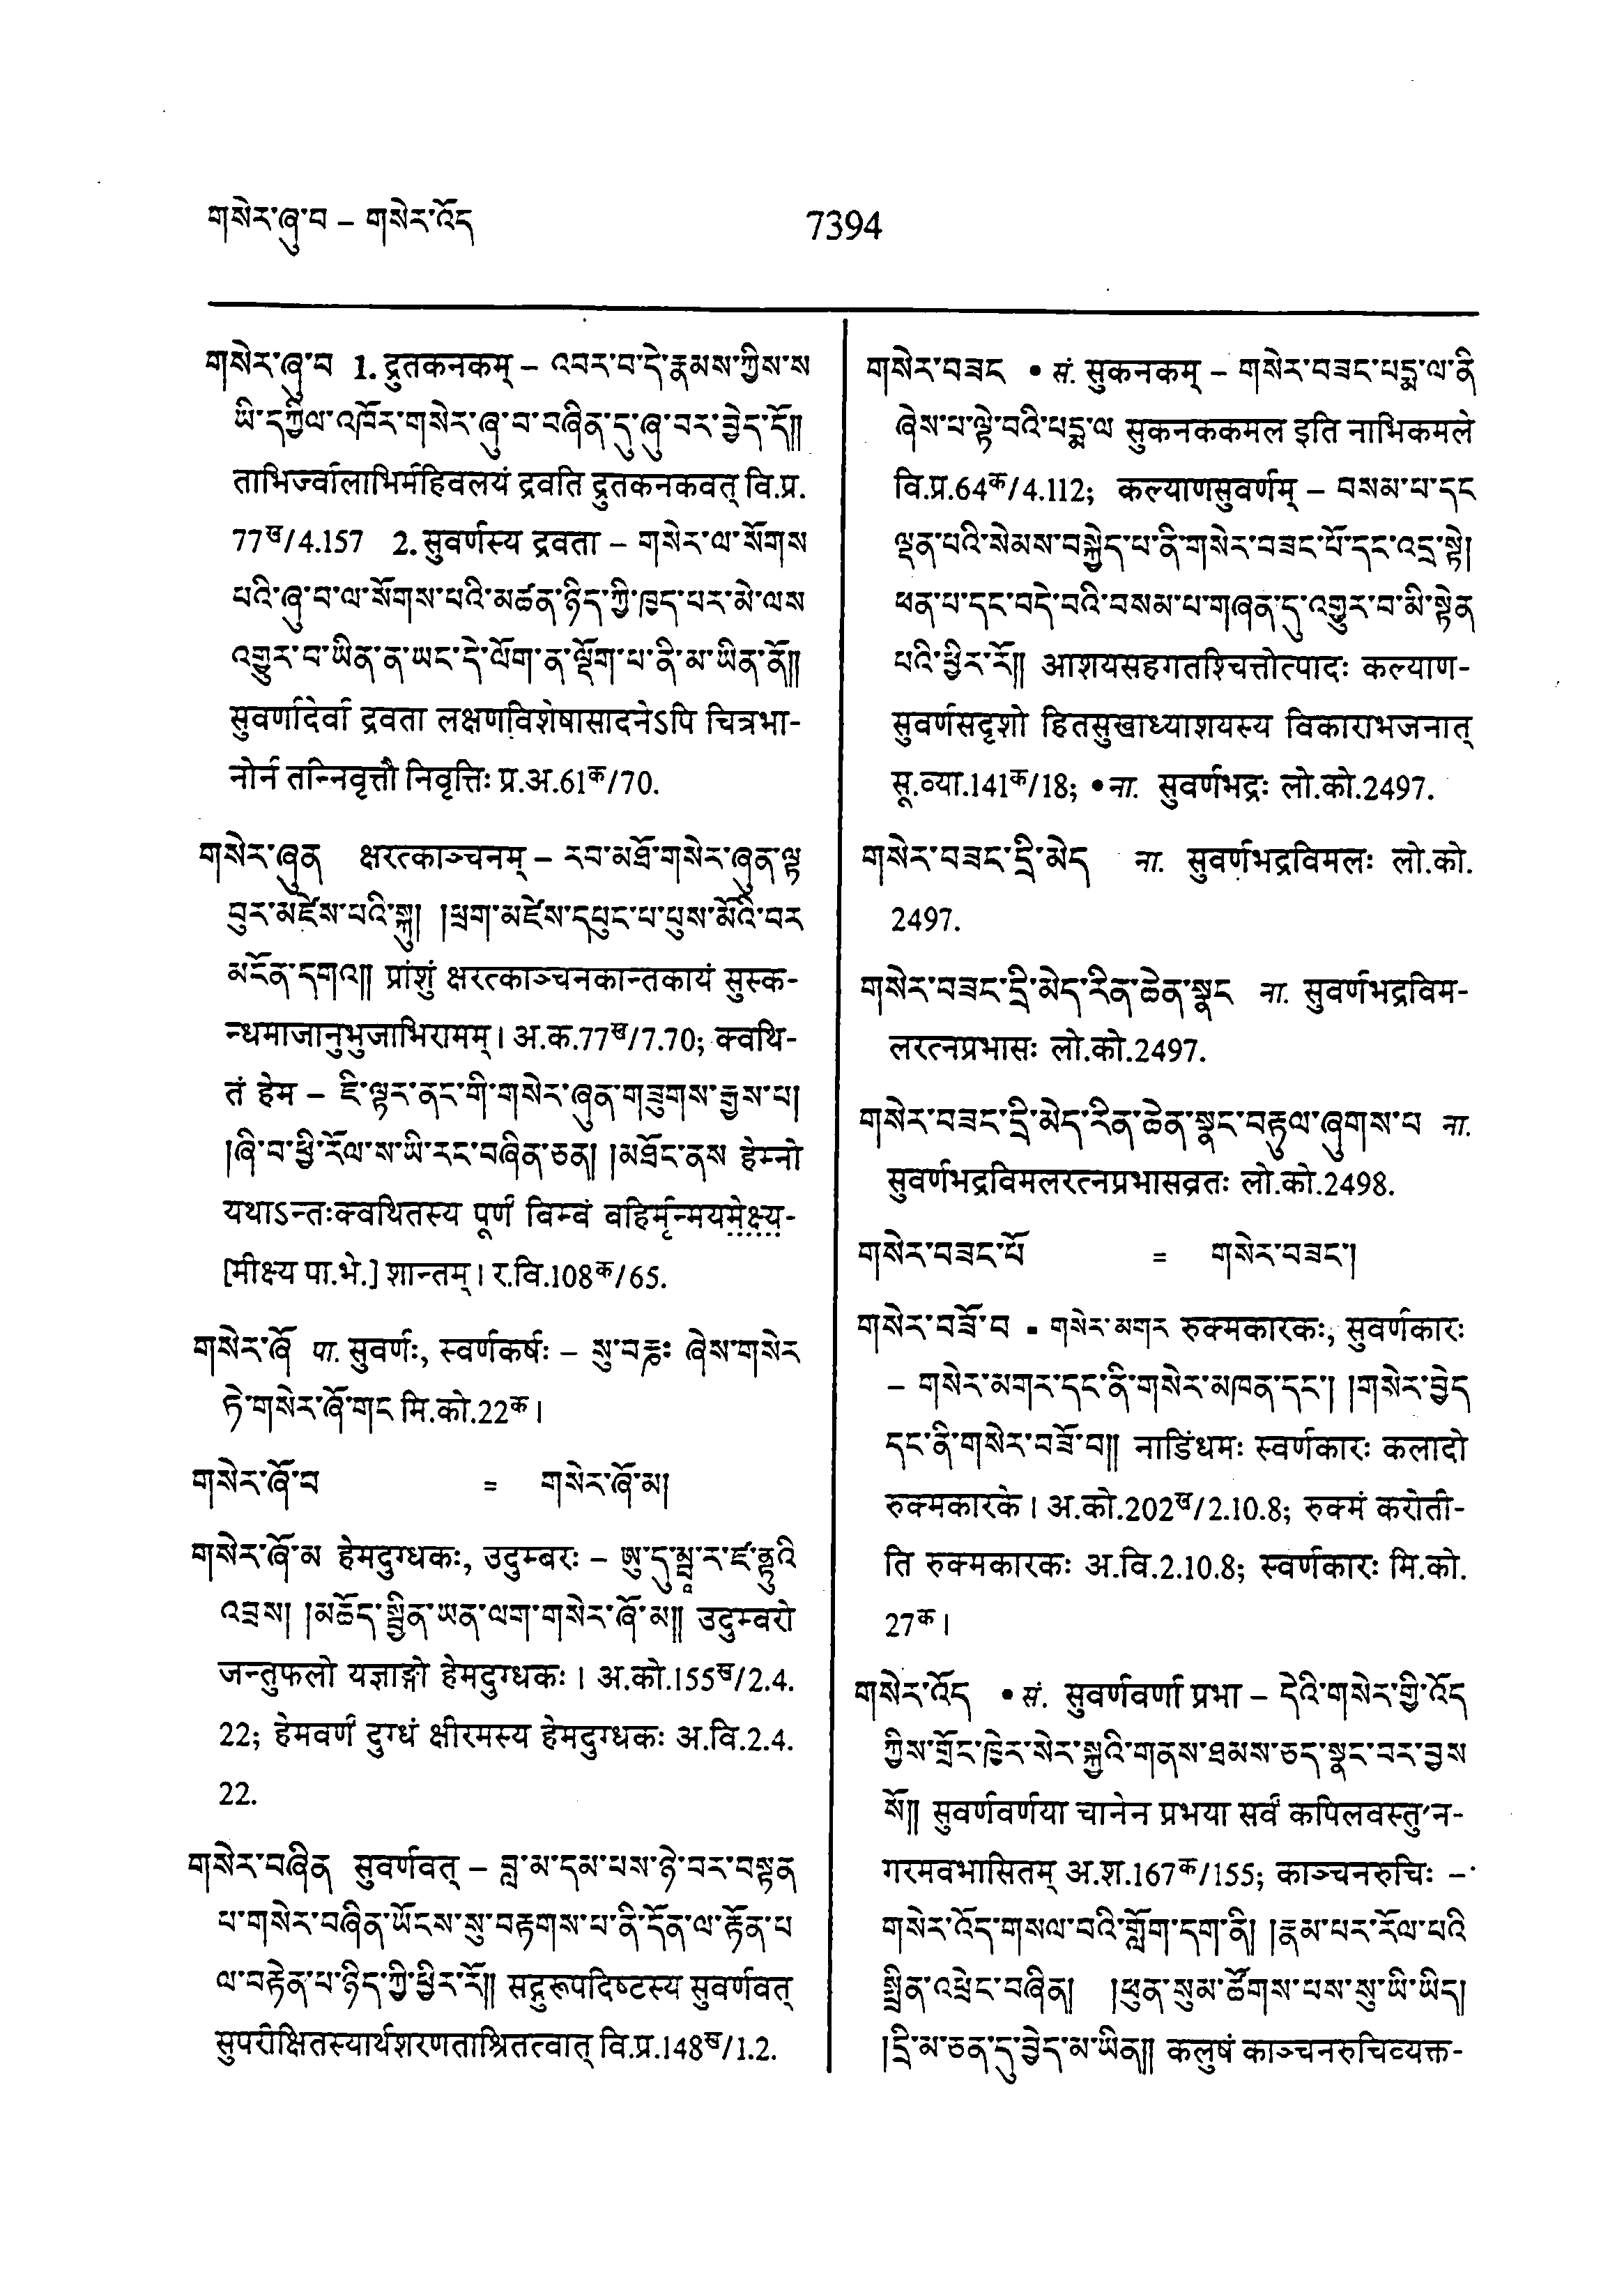 གསེར་ཞུ་བ – གསེར་འོད
7394
གསེར་ཞུ་བ 1. द्रुतकनकम् – འབར་བ་དེ་རྣམས་ཀྱིས་ས
ཡི་དཀྱིལ་འཁོར་གསེར་ཞུ་བ་བཞིན་དུ་ཞུ་བར་བྱེད་དོ།།
ताभिर्ज्वालाभिर्महिवलयं द्रवति द्रुतकनकवत् वि.प्र.
77ख/4.157 2. सुवर्णस्य द्रवता – གསེར་ལ་སོགས
པའི་ཞུ་བ་ལ་སོགས་པའི་མཚན་ཉིད་ཀྱི་ཁྱད་པར་མེ་ལས
འགྱུར་བ་ཡིན་ན་ཡང་དེ་ལོག་ན་ལྡོག་པ་ནི་མ་ཡིན་ནོ།།
सुवर्णादेर्वा द्रवता लक्षणविशेषासादनेऽपि चित्रभा-
नोर्न तन्निवृत्तौ निवृत्तिः प्र.अ.61क/70.
གསེར་ཞུན क्षरत्काञ्चनम् – རབ་མཐོ་གསེར་ཞུན་ལྟ
བུར་མཛེས་པའི་སྐུ། །ཕྲག་མཛེས་དཔུང་པ་པུས་མོའི་བར
མངོན་དགའ།། प्रांशुं क्षरत्काञ्चनकान्तकायं सुस्क-
न्धमाजानुभुजाभिरामम्। अ.क.77ख/7.70; क्वथि-
तं हेम – ཇི་ལྟར་ནང་གི་གསེར་ཞུན་གཟུགས་རྒྱས་པ།
།ཞི་བ་ཕྱི་རོལ་ས་ཡི་རང་བཞིན་ཅན། །མཐོང་ནས हेम्नो
यथाऽन्तःक्वथितस्य पूर्णं विम्वं वहिर्मृन्मयमेक्ष्य-
[मीक्ष्य पा.भे.] शान्तम्। र.वि.108क/65.
གསེར་ཞོ पा. सुवर्णः, स्वर्णकर्षः – སུ་བརྞཿ ཞེས་གསེར
ཏེ་གསེར་ཞོ་གང मि.को.22क।
གསེར་ཞོ་བ = གསེར་ཞོ་མ།
གསེར་ཞོ་མ हेमदुग्धकः, उदुम्बरः – ཨུ་དུ་མྦཱ་ར་ཛ་ནྟུའི
འབྲས། །མཆོད་སྦྱིན་ཡན་ལག་གསེར་ཞོ་མ།། उदुम्बरो
जन्तुफलो यज्ञाङ्गो हेमदुग्धकः। अ.को.155ख/2.4.
22; हेमवर्णं दुग्धं क्षीरमस्य हेमदुग्धकः अ.वि.2.4.
22.
གསེར་བཞིན सुवर्णवत् – བླ་མ་དམ་པས་ཉེ་བར་བསྟན
པ་གསེར་བཞིན་ཡོངས་སུ་བརྟགས་པ་ནི་དོན་ལ་རྟོན་པ
ལ་བརྟེན་པ་ཉིད་ཀྱི་ཕྱིར་རོ།། सद्गुरूपदिष्टस्य सुवर्णवत्
सुपरीक्षितस्यार्थशरणताश्रितत्वात् वि.प्र.148ख/1.2.
གསེར་བཟང • सं. सुकनकम् – གསེར་བཟང་པདྨ་ལ་ནི
ཞེས་པ་ལྟེ་བའི་པདྨ་ལ सुकनककमल इति नाभिकमले
वि.प्र.64क/4.112; कल्याणसुवर्णम् – བསམ་པ་དང
ལྡན་པའི་སེམས་བསྐྱེད་པ་ནི་གསེར་བཟང་པོ་དང་འདྲ་སྟེ།
ཕན་པ་དང་བདེ་བའི་བསམ་པ་གཞན་དུ་འགྱུར་བ་མི་སྟེན
པའི་ཕྱིར་རོ།། आशयसहगतश्चित्तोत्पादः कल्याण-
सुवर्णसदृशो हितसुखाध्याशयस्य विकाराभजनात्
सू.व्या.141क/18; • ना. सुवर्णभद्रः लो.को.2497.
གསེར་བཟང་དྲི་མེད ना. सुवर्णभद्रविमलः लो.को.
2497.
གསེར་བཟང་དྲི་མེད་རིན་ཆེན་སྣང ना. सुवर्णभद्रविम-
लरत्नप्रभासः लो.को.2497.
གསེར་བཟང་དྲི་མེད་རིན་ཆེན་སྣང་བརྟུལ་ཞུགས་པ ना.
सुवर्णभद्रविमलरत्नप्रभासव्रतः लो.को.2498.
གསེར་བཟང་པོ = གསེར་བཟང་།
གསེར་བཟོ་བ ▪ གསེར་མགར रुक्मकारकः, सुवर्णकारः
– གསེར་མགར་དང་ནི་གསེར་མཁན་དང་། །གསེར་བྱེད
དང་ནི་གསེར་བཟོ་བ།། नाडिंधमः स्वर्णकारः कलादो
रुक्मकारके। अ.को.202ख/2.10.8; रुक्मं करोती-
ति रुक्मकारकः अ.वि.2.10.8; स्वर्णकारः मि.को.
27क।
གསེར་འོད • सं. सुवर्णवर्णा प्रभा – དེའི་གསེར་གྱི་འོད
ཀྱིས་གྲོང་ཁྱེར་སེར་སྐྱའི་གནས་ཐམས་ཅད་སྣང་བར་བྱས
སོ།། सुवर्णवर्णया चानेन प्रभया सर्वं कपिलवस्तु'न-
गरमवभासितम् अ.श.167क/155; काञ्चनरुचिः –
གསེར་འོད་གསལ་བའི་གློག་དག་ནི། །རྣམ་པར་རོལ་པའི
སྤྲིན་འཕྲེང་བཞིན། །ཕུན་སུམ་ཚོགས་པས་སུ་ཡི་ཡིད།
།དྲི་མ་ཅན་དུ་བྱེད་མ་ཡིན།། कलुषं काञ्चनरुचिव्यक्त-